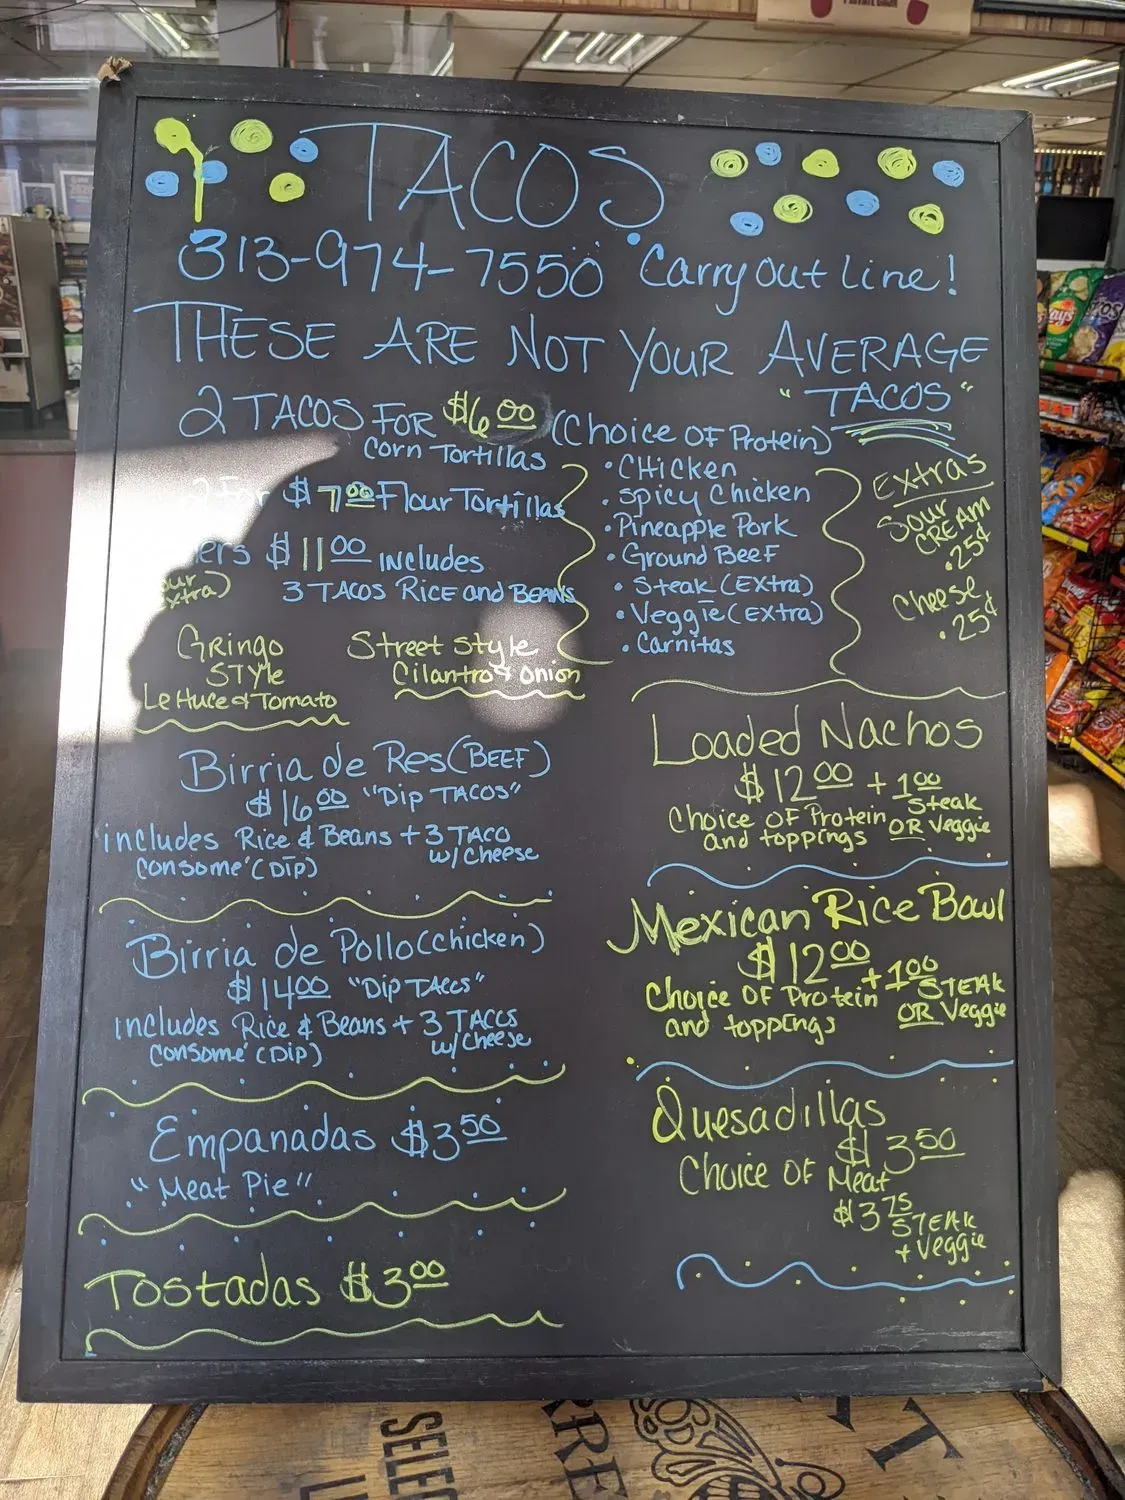 TACOS
313-974-7550 Carry out Line!
THESE ARE NOT YOUR AVERAGE
"TACOS"
2 TACOS FOR $6.00 (Choice OF Protein)
Corn Tortillas
2 For $7.00 Flour Tortillas
$11.00 includes
3 TACOS Rice and BEANS
Gringo
STyle
Lettuce & Tomato
Street Style
Cilantro & onion
• CHicken
• Spicy Chicken
• Pineapple Pork
• Ground Beef
• Steak (EXtra)
• Veggie (EXtra)
• Carnitas
Extras
Sour
CREAM
.25¢
Cheese
.25¢
Birria de Res (BEEF)
$16.00 "Dip TACOS"
includes Rice & Beans + 3 TACO
w/ Cheese
consome' (Dip)
Birria de Pollo (chicken)
$14.00 "Dip TACOS"
includes Rice & Beans + 3 TACOS
w/ Cheese
consome' (Dip)
Empanadas $3.50
"Meat Pie"
Tostadas $3.00
Loaded Nachos
$12.00 + 1.00
Steak
Choice OF Protein OR Veggie
and toppings
Mexican Rice Bowl
$12.00 + 1.00
STEAK
Choice OF Protein OR Veggie
and toppings
Quesadillas
$3.50
Choice OF Meat
$3.75
STEAK
+ Veggie
SELEC